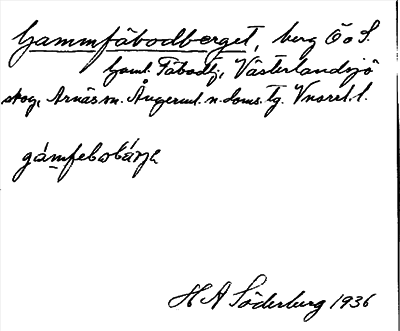 Gammfäbodberget, berg Ö o S.
Gaml. Fäbodtj., Västerlandsjö
skog, Arnäs sn. Ångerml. n. doms. Tg. Vnorrl. l.
gámfebo
H A Söderberg 1936